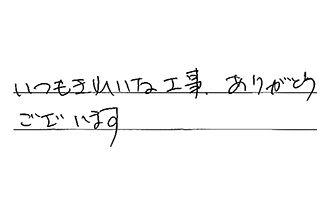 いつもきれいな工事、ありがとう
ございます